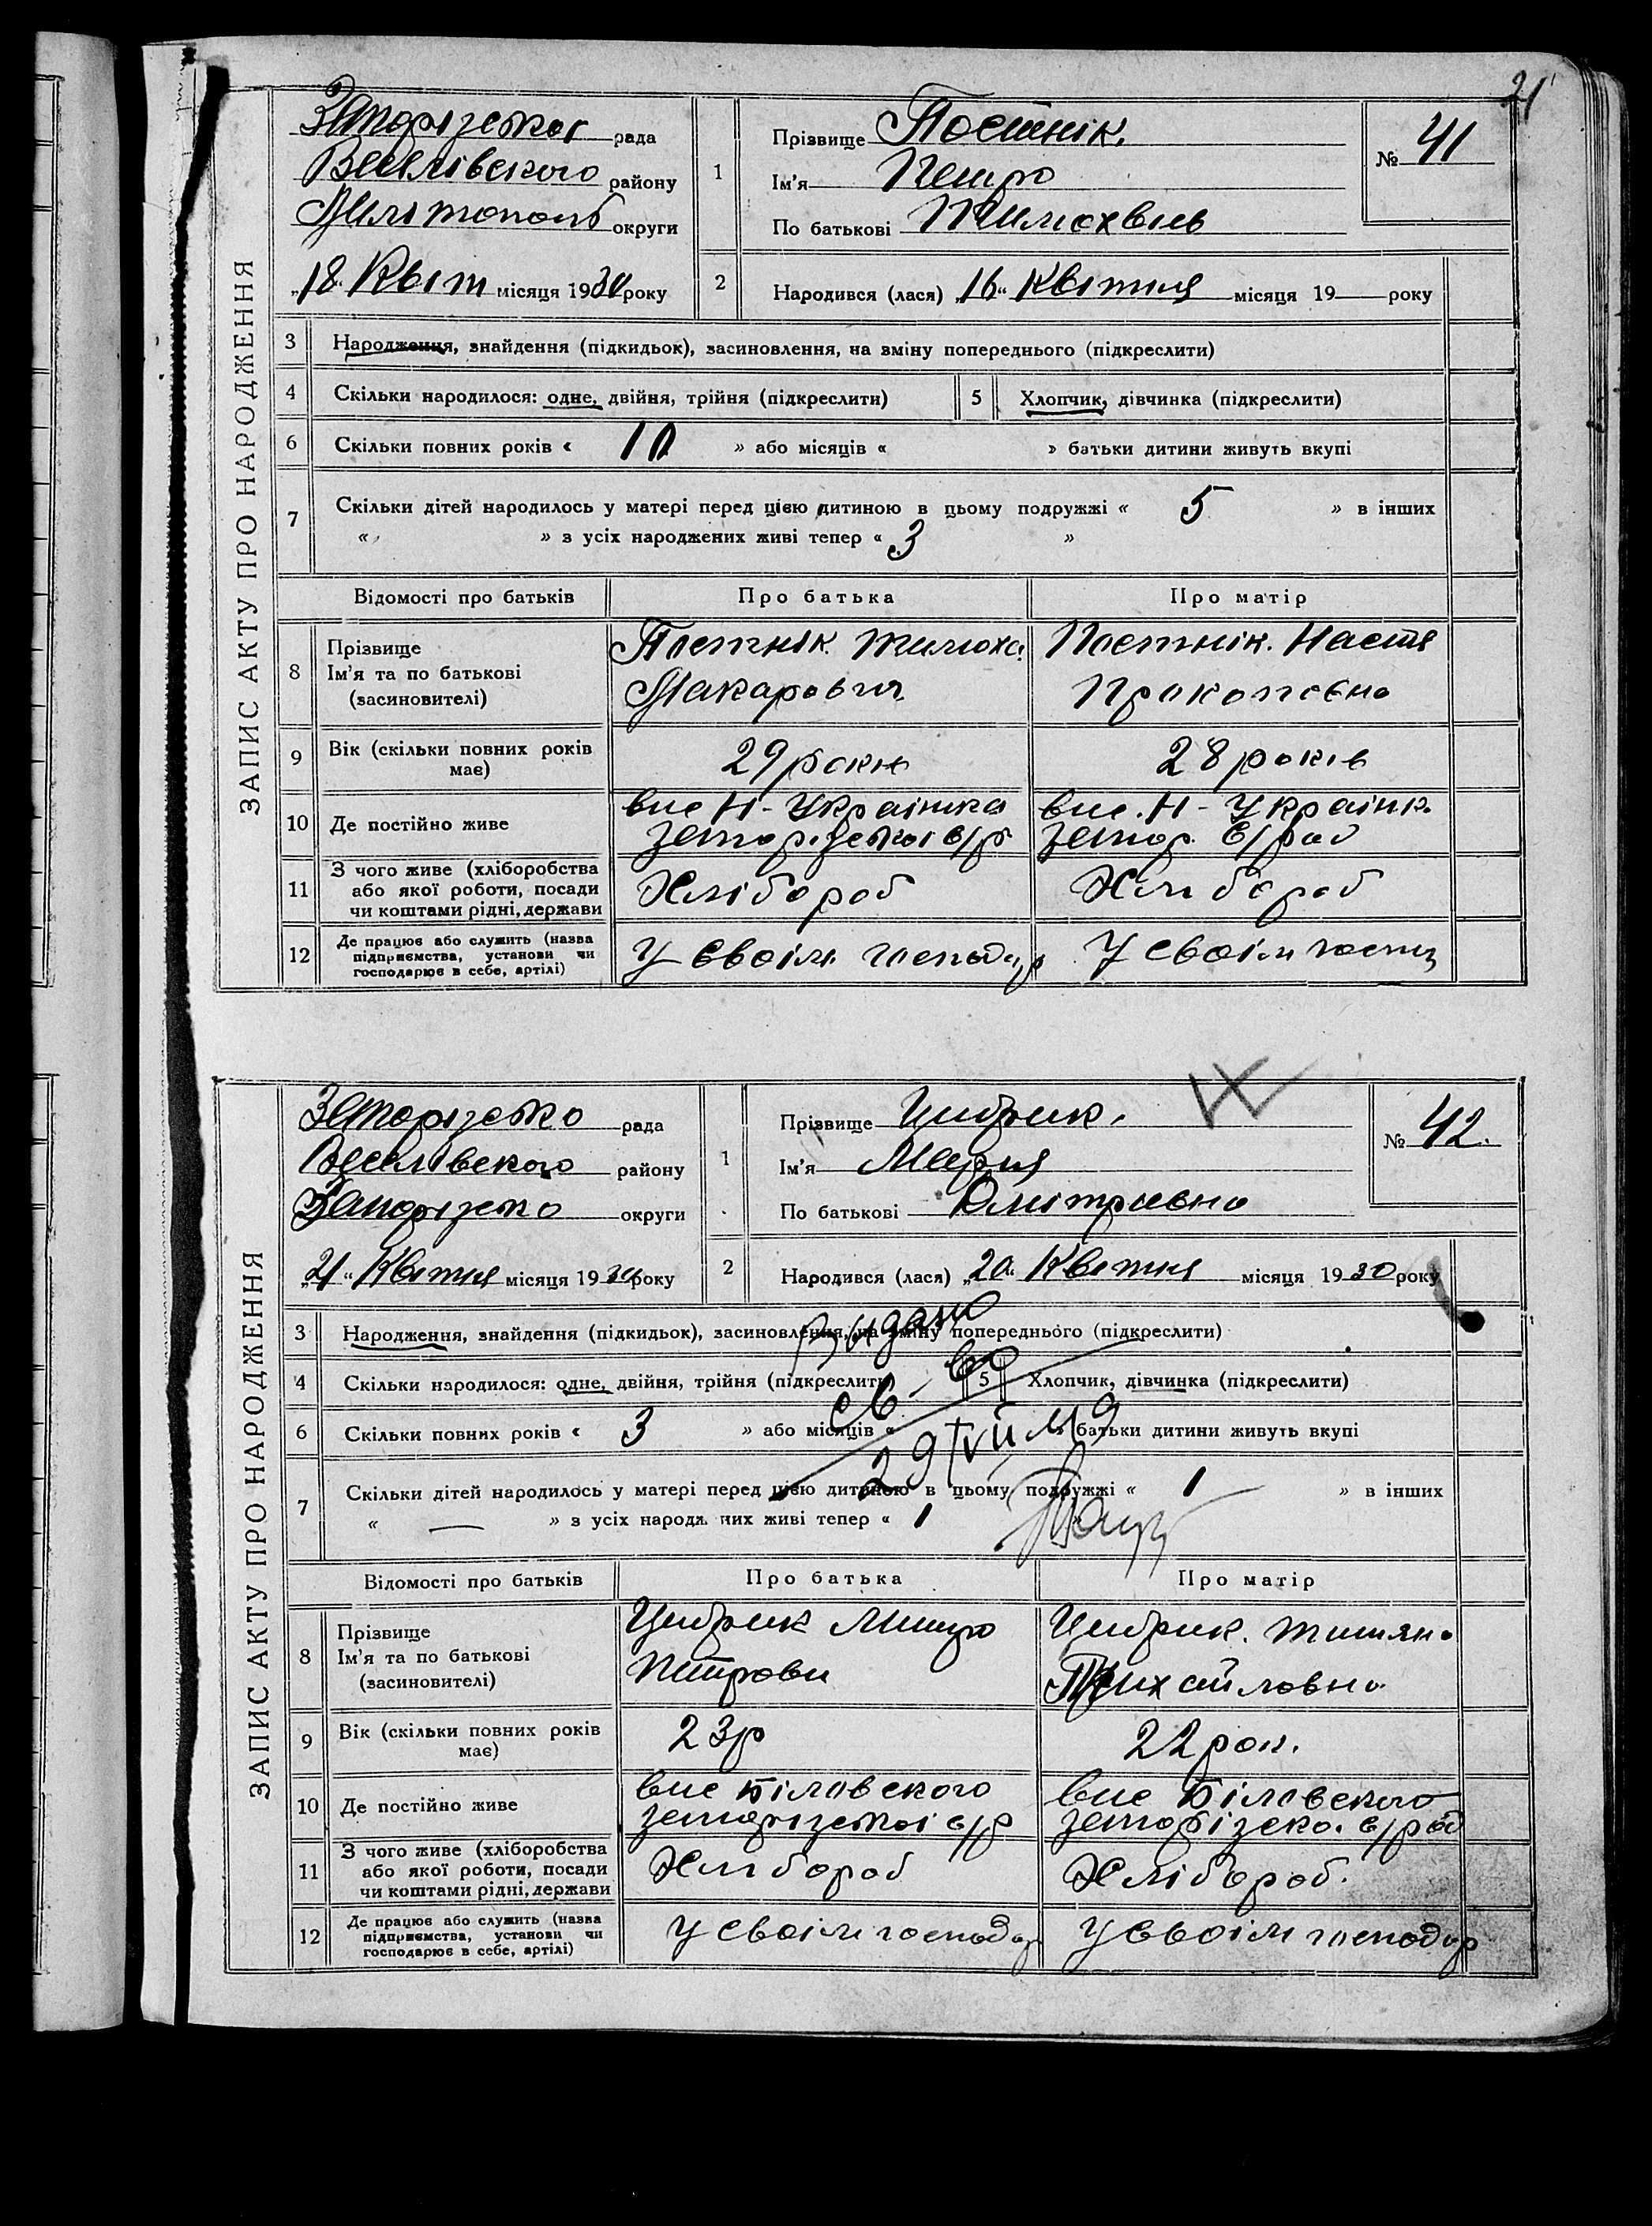 21
ЗАПИС АКТУ ПРО НАРОДЖЕННЯ
Запорізької рада
Веселівского району
Мелітополь округи
„18 Квіт місяця 1930 року
1
Прізвище Постнік.
Ім'я Петро
По батькові Тимохвіїв
№ 41
2
Народився (лася) „16" Квітня місяця 19 року
3 Народження, знайдення (підкидьок), засиновлення, на зміну попереднього (підкреслити)
4 Скільки народилося: одне, двійня, трійня (підкреслити) 5 Хлопчик, дівчинка (підкреслити)
6 Скільки повних років « 10 » або місяців « » батьки дитини живуть вкупі
7 Скільки дітей народилось у матері перед цією дитиною в цьому подружжі « 5 » в інших
« » з усіх народжених живі тепер « 3 »
Відомості про батьків Про батька Про матір
8 Прізвище Ім'я та по батькові (засиновителі)
Постнік Тимоха Макарович
Постнік. Настя Прокопєвна
9 Вік (скільки повних років має) 29 роки 28 років
10 Де постійно живе
вис Н-Українка Запорізької с/р
вис. Н-Українк. Запор. с/рад
11 З чого живе (хліборобства або якої роботи, посади чи коштами рідні, держави Хлібороб Хлібороб
12 Де працює або служить (назва підприємства, установи чи господарює в себе, артілі) У своїм господар У своїм госпд
ЗАПИС АКТУ ПРО НАРОДЖЕННЯ
Запорізько рада
Веселівского району
Запорізько округи
„21" Квітня місяця 1930 року
1
Прізвище Цибрик.
Ім'я Мария
По батькові Дмітриєвна
№ 42.
2
Народився (лася) „20" Квітня місяця 1930 року
3 Народження, знайдення (підкидьок), засиновлення, на зміну попереднього (підкреслити)
Видано
4 Скільки народилося: одне, двійня, трійня (підкреслити) 5 Хлопчик, дівчинка (підкреслити)
св-во
6 Скільки повних років « 3 » або місяців « батьки дитини живуть вкупі
29/VII
7 Скільки дітей народилось у матері перед цією дитиною в цьому подружжі « 1 » в інших
« — » з усіх народжених живі тепер « 1
Відомості про батьків Про батька Про матір
8 Прізвище Ім'я та по батькові (засиновителі)
Цибрик Митро Петрови
Цибрик. Титяна Михайловна
9 Вік (скільки повних років має) 23р 22 рок.
10 Де постійно живе
вис Біловского Запорізької с/р
вис Біловского Запорізско. с/рад
11 З чого живе (хліборобства або якої роботи, посади чи коштами рідні, держави Хлібороб Хлібороб.
12 Де працює або служить (назва підприємства, установи чи господарює в себе, артілі) У своїм господар У своїм господар